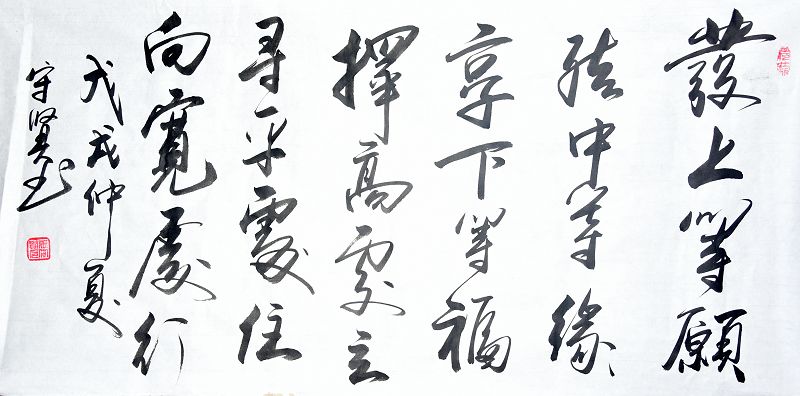 發上等願
結中等緣
享下等福
擇高處立
尋平處住
向寬處行
戊戌仲夏
守贤书